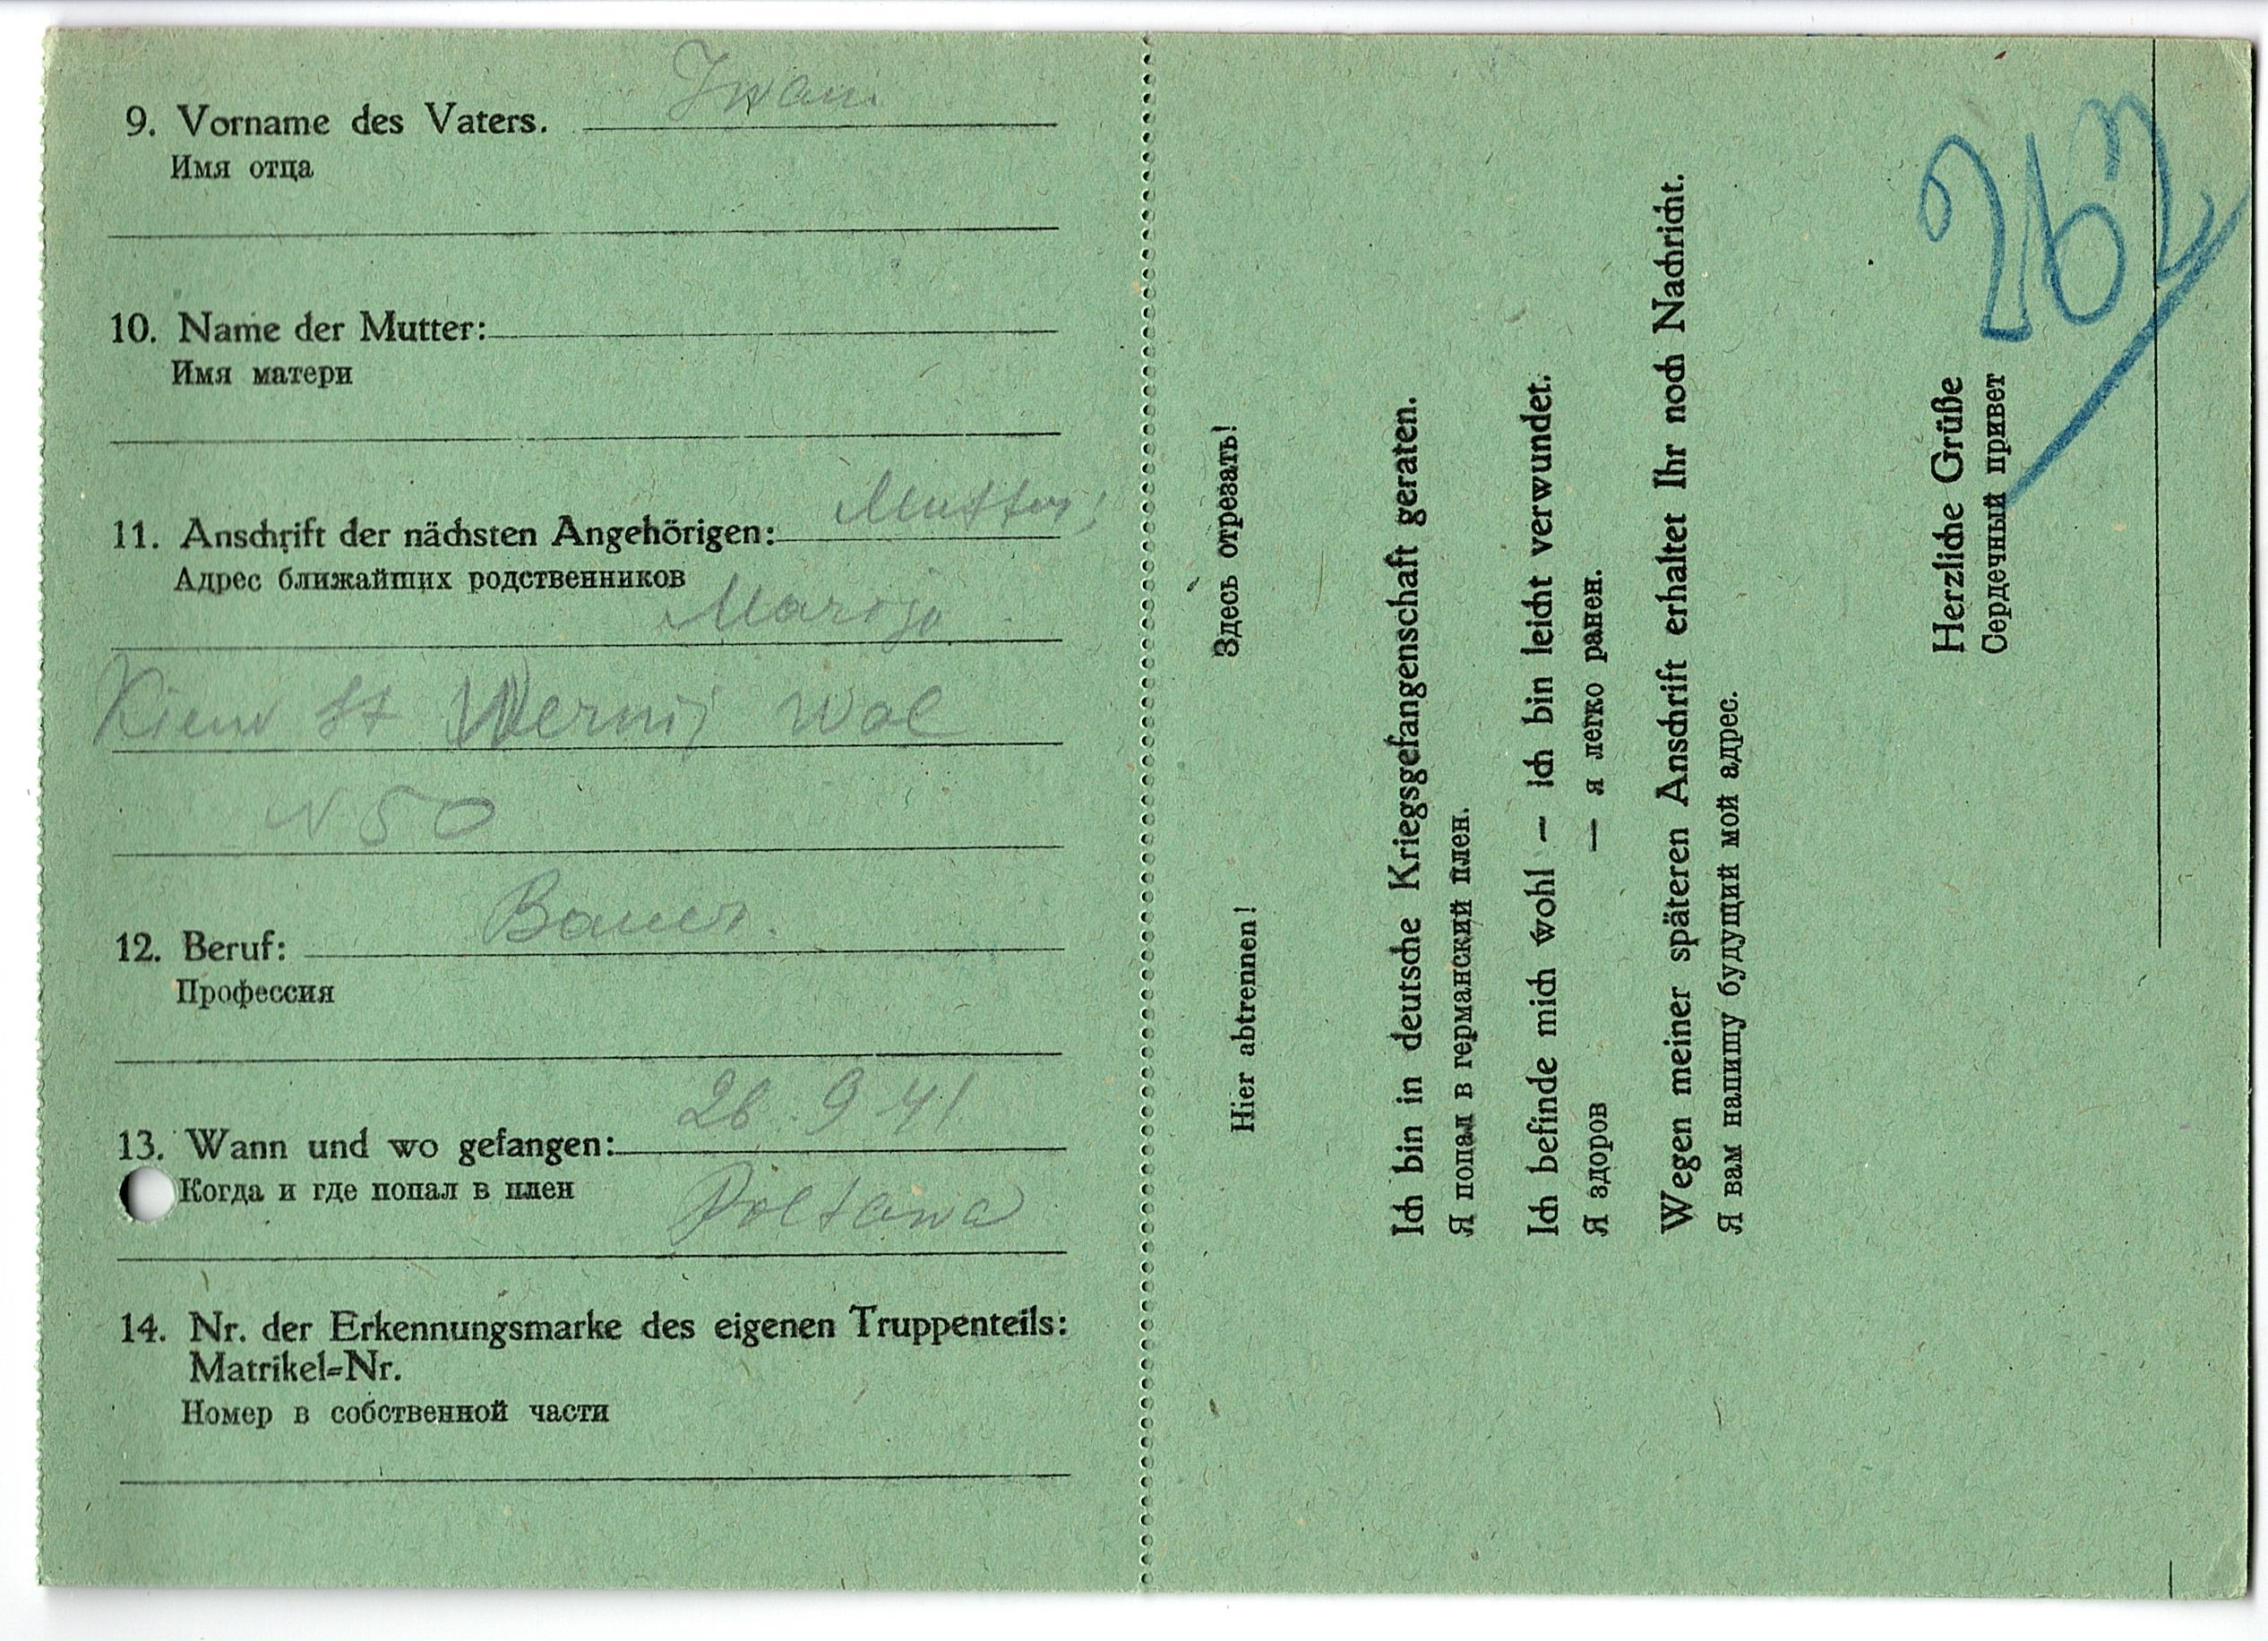 9. Vorname des Vaters. Iwan
Имя отца
10. Name der Mutter:
Имя матери
11. Anschrift der nächsten Angehörigen: Mutter!
Адрес ближайших родственников
Marija
Kiew st Wernij wol
N 50
12. Beruf: Bauer.
Профессия
13. Wann und wo gefangen: 26.9 41
Когда и где попал в плен Poltawa
14. Nr. der Erkennungsmarke des eigenen Truppenteils:
Matrikel=Nr.
Номер в собственной части
Hier abtrennen! Здесь отрезать!
Ich bin in deutsche Kriegsgefangenschaft geraten.
Я попал в германский плен.
Ich befinde mich wohl — Ich bin leicht verwundet.
Я здоров — я легко ранен.
Wegen meiner späteren Anschrift erhaltet Ihr noch Nachricht.
Я вам напишу будущий мой адрес.
Herzliche Grüße
Сердечный привет